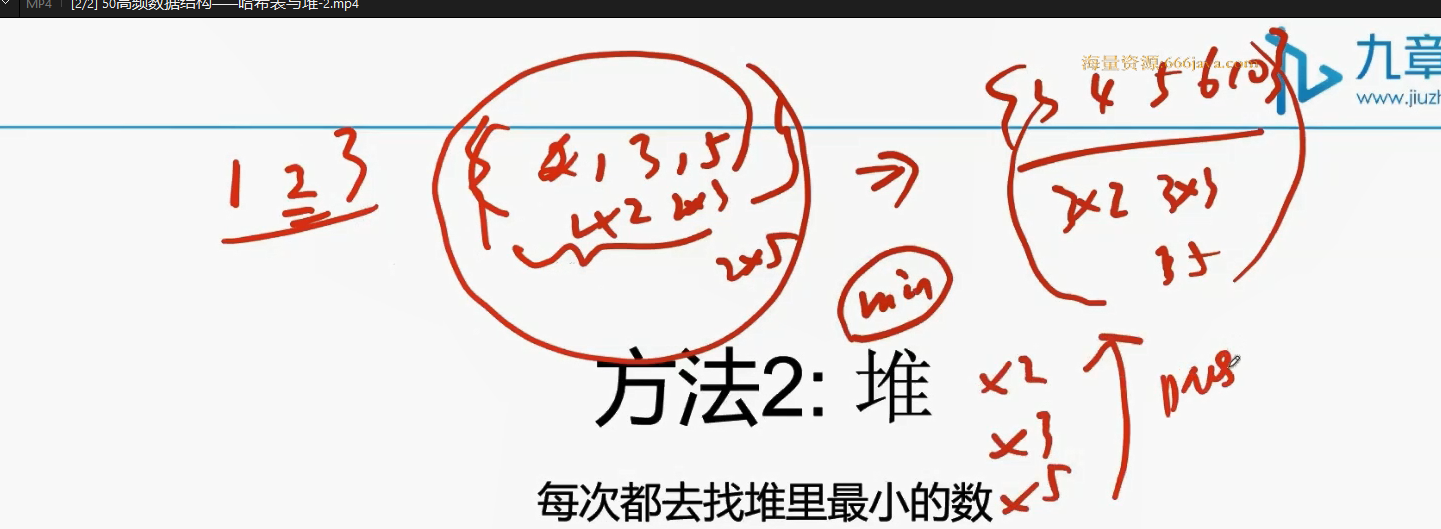 MP4 [2/2] 50高频数据结构——哈希表与堆-2.mp4
海量资源:666java.com
九章
www.jiuzh
1 2 3
{ 2, 3, 5 }
2x2 2x3
2x5
=>
{ 3 4 5 6 10 }
3x2 3x3
3 5
min
方法2: 堆
x2
x3
x5
push
每次都去找堆里最小的数